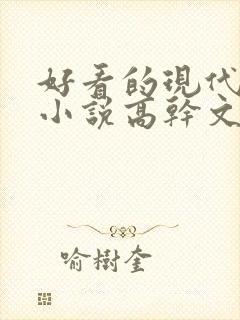 好看的現代
小說高幹文
喻樹奎